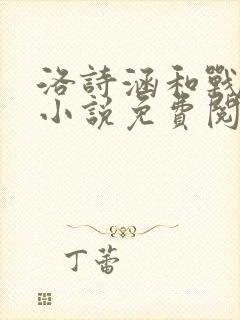 洛詩涵和戰
小說免費閱
丁蕾